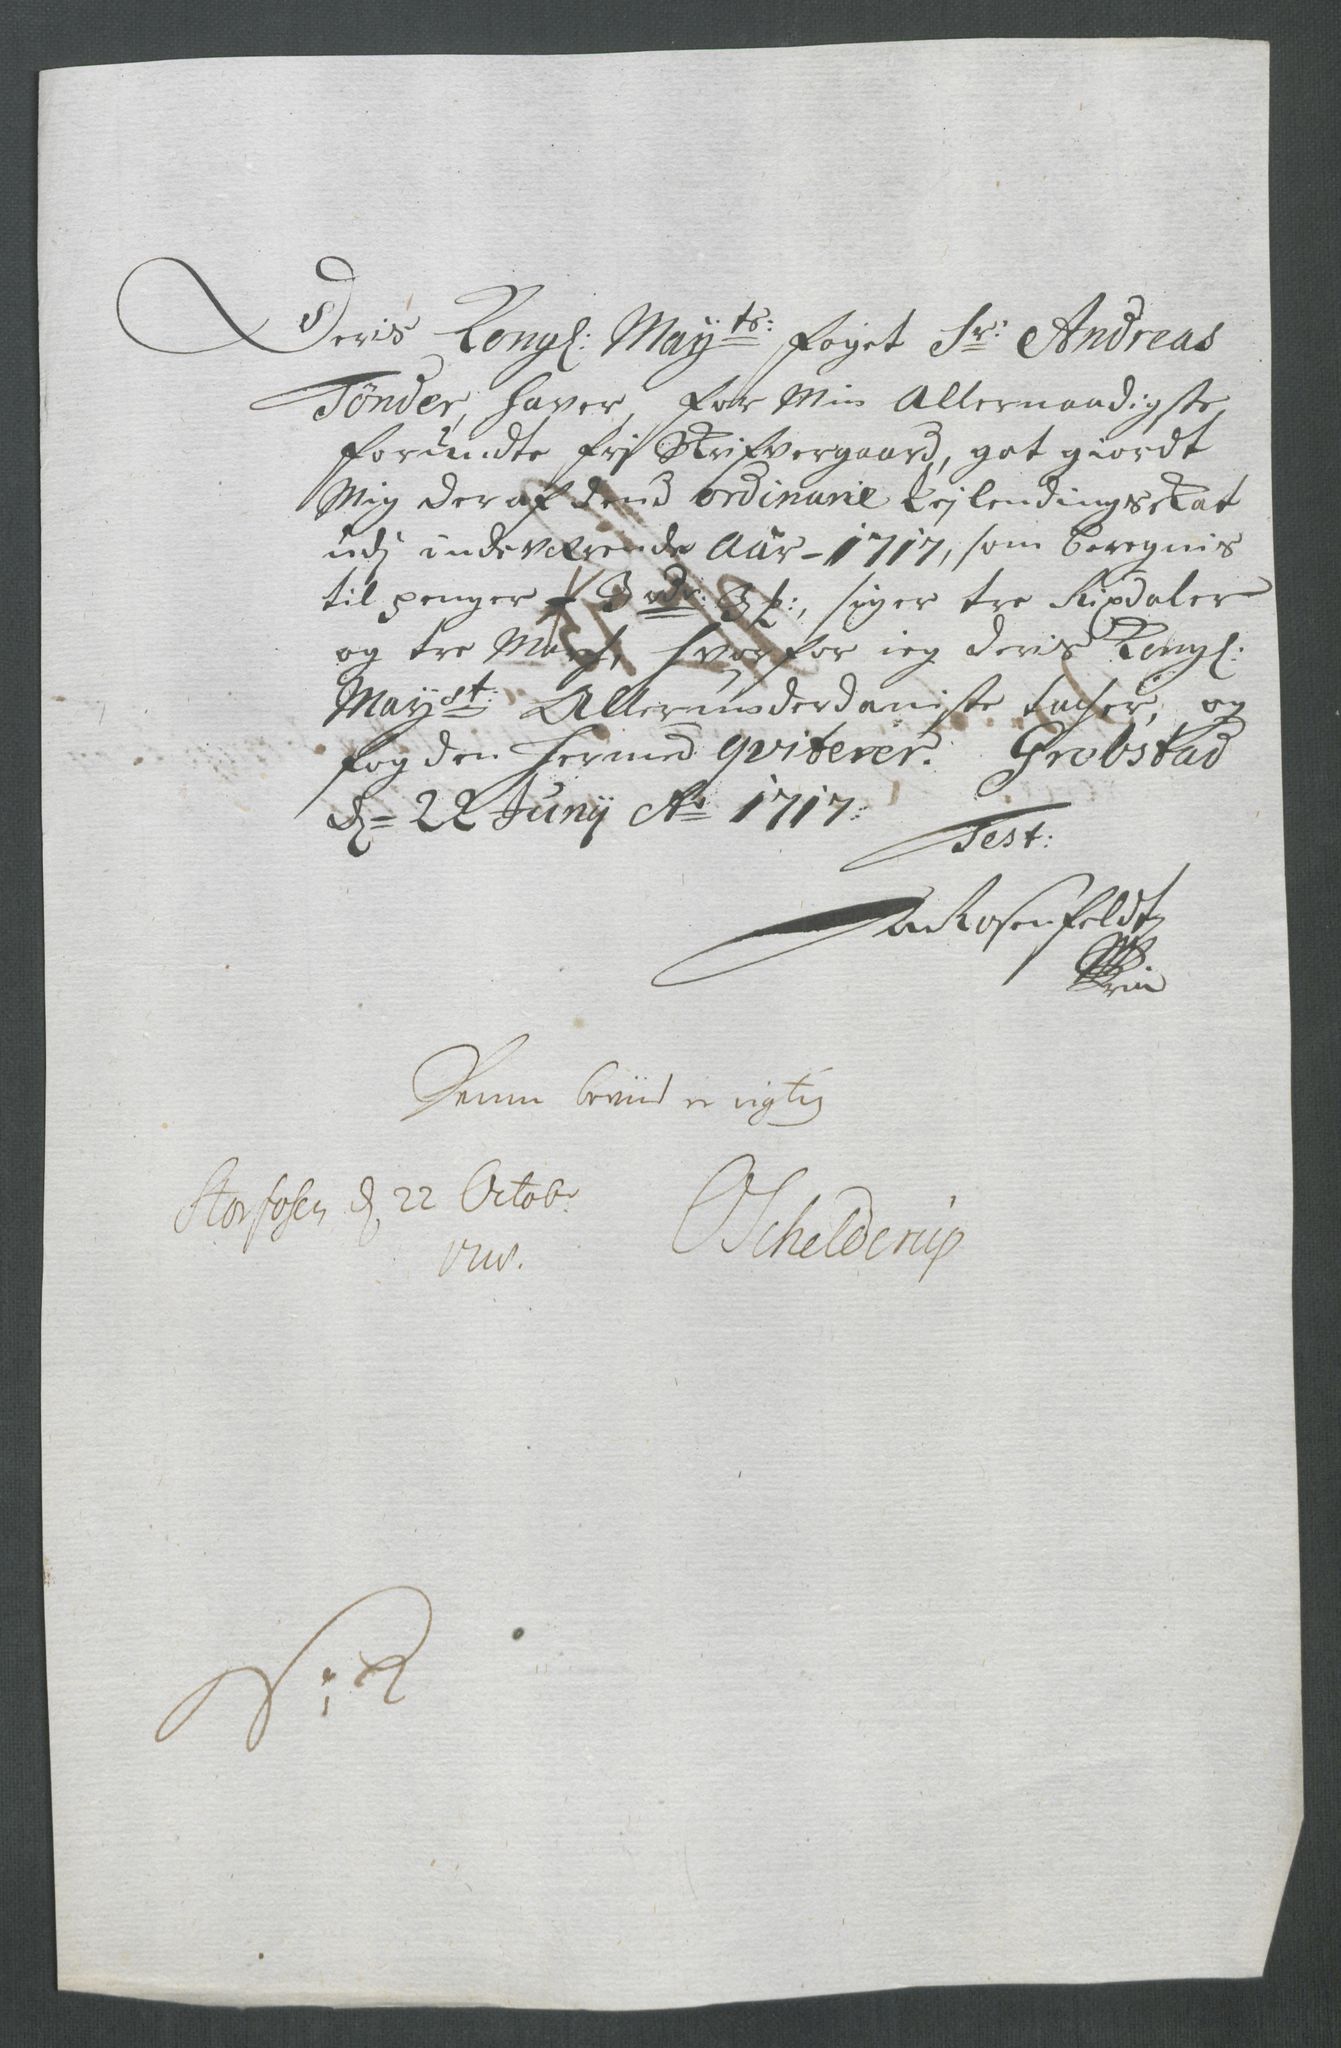 Deris Kongl: Mayts: foget Sr: Andreas
Tønder, hafver, for Min Allernaadigste
forundte frj Skrifvergaard, got giordt
Mig deraf dend ordinarie Lejlendingsskat
udj indeværende Aar - 1717, som beregnis
til penger - 3 rdr: 3 ß:, siger tre Rixdaler
og tre March, hvorfor ieg deris Kongl:
Mayst: Allerunderdaniste tacher, og
fogden hermed qviterer. Grobstad
d= 22 Junij Ao 1717:
Test:
Rosenfeldt
Denne beviis er rigtig
Storfosen d, 22 Octobr
1718.
OSchelderup
N: 2